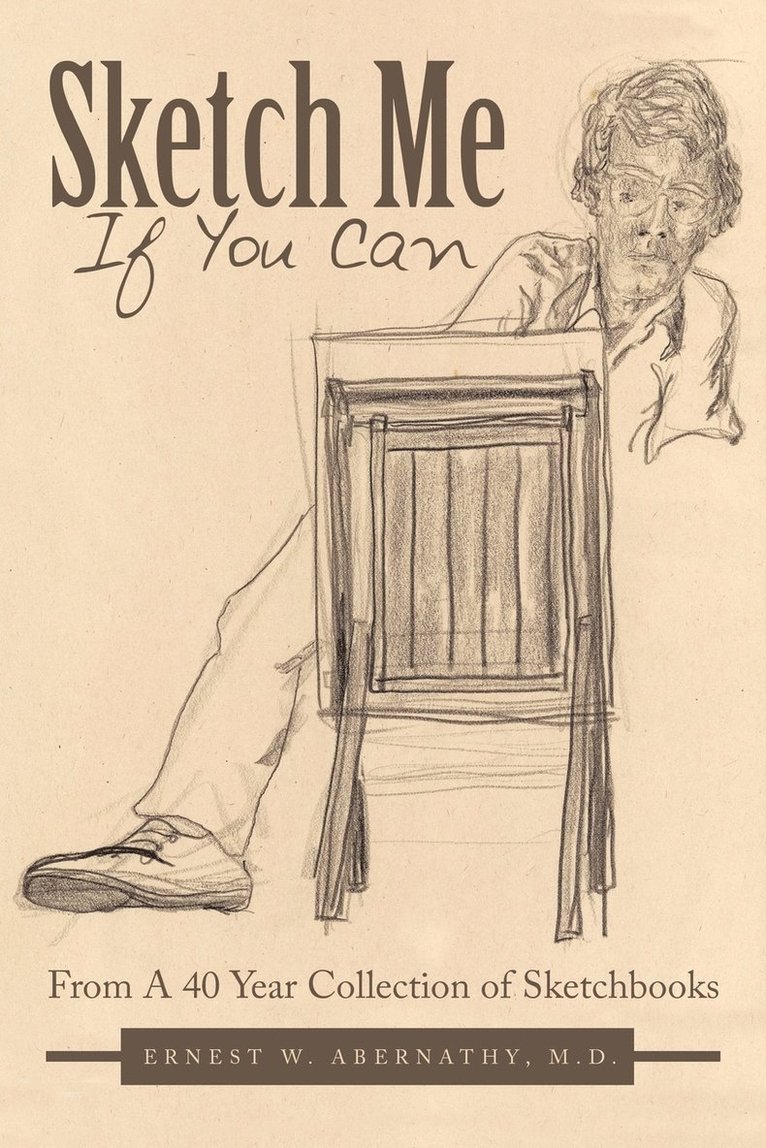 Sketch Me
If You Can
From A 40 Year Collection of Sketchbooks
ERNEST W. ABERNATHY, M.D.